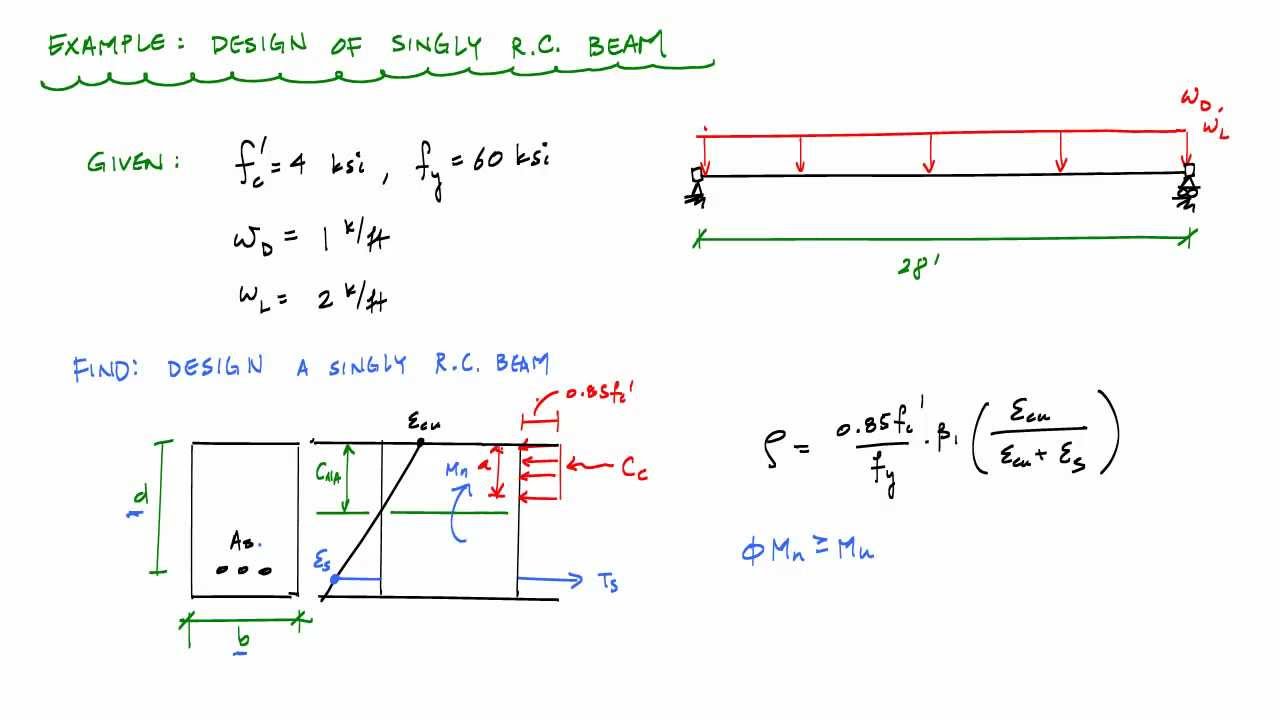 EXAMPLE: DESIGN OF SINGLY R.C. BEAM
GIVEN: f'c = 4 ksi, fy = 60 ksi
ωD = 1 k/ft
ωL = 2 k/ft
ωD,
ωL
28'
FIND: DESIGN A SINGLY R.C. BEAM
d
As.
b
εcu
CN/A
εs
Mn
a
0.85fc'
Cc
Ts
ρ = 0.85fc'/fy · β1 (εcu/εcu + εs)
φMn ≥ Mu